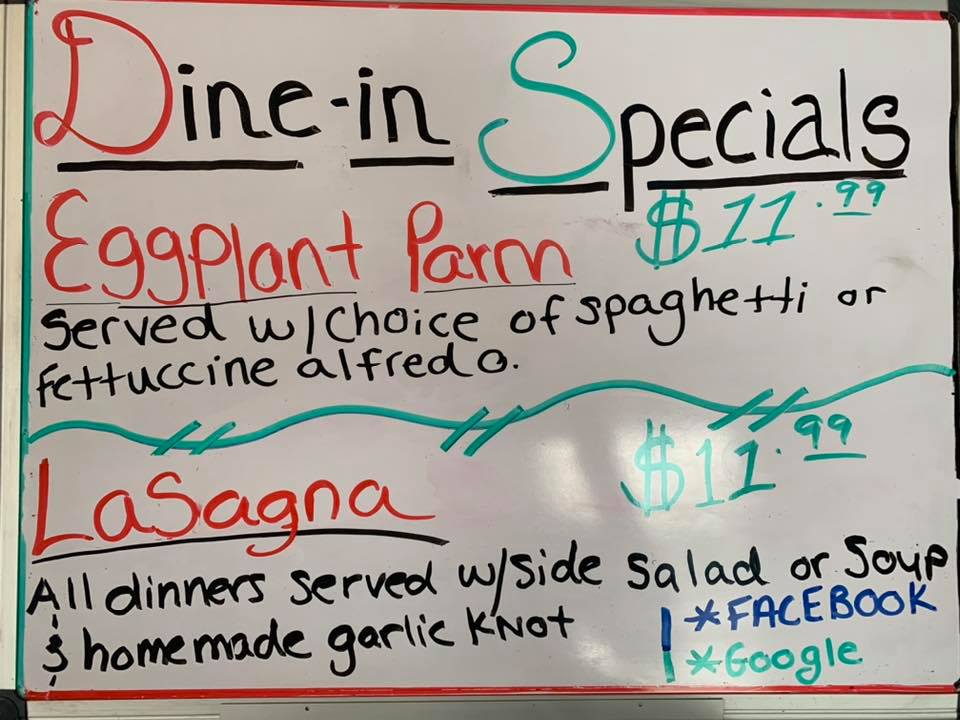 Dine-in Specials
Eggplant Parm $11.99
Served w/choice of spaghetti or
fettuccine alfredo.
Lasagna $11.99
All dinners served w/side salad or soup
& homemade garlic knot
*FACEBOOK
*Google